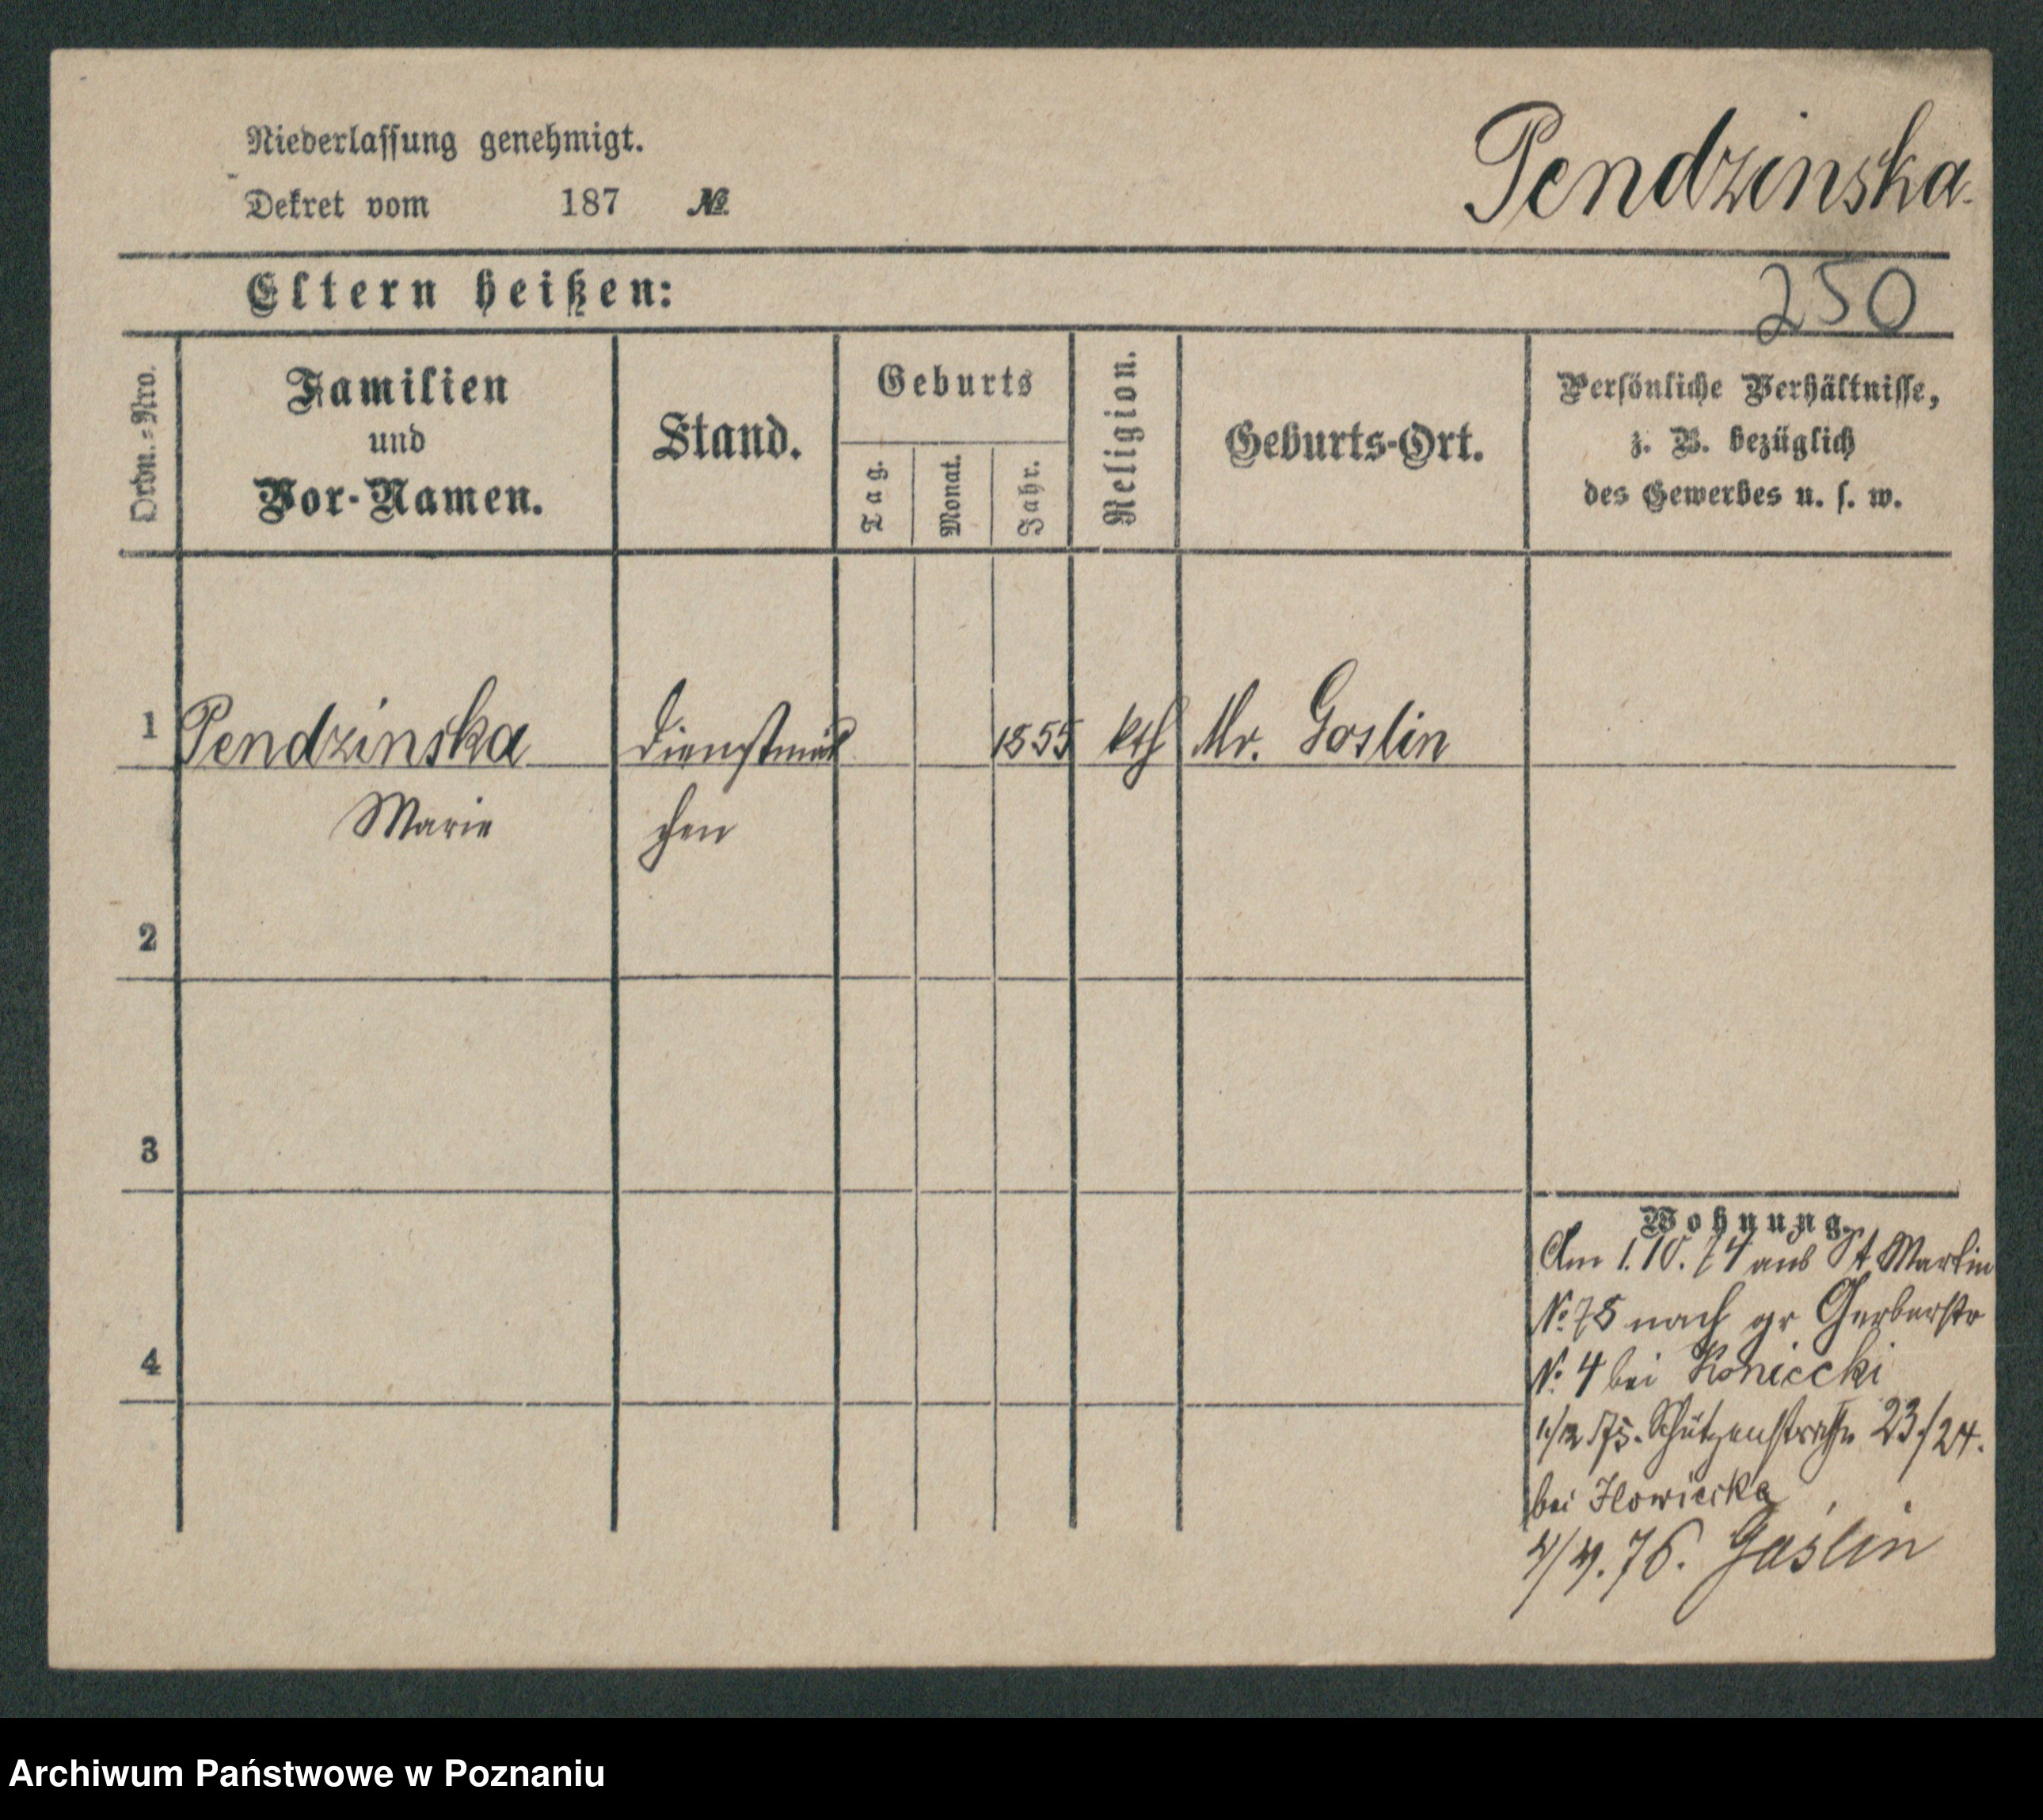 Niederlassung genehmigt.
Dekret vom 187 №
Pendzinska.
Eltern heißen:
250
Ordn.-Nro.
Familien
und
Vor-Namen.
Stand.
Geburts
Tag.
Monat.
Jahr.
Religion.
Geburts-Ort.
Persönliche Verhältnisse,
z. B. bezüglich
des Gewerbes u. s. w.
1 Pendzinska Dienstmäd 1855 kth Mr. Goslin
Marie chen
2
3
4
Wohnung.
Am 1.10.74 aus St Martin
No 78 nach gr Gerberstr
No 4 bei Koniecki
1/12 75. Schützenstraße 23/24.
bei Ilowiecka
4/4. 76. Goslin
Archiwum Państwowe w Poznaniu